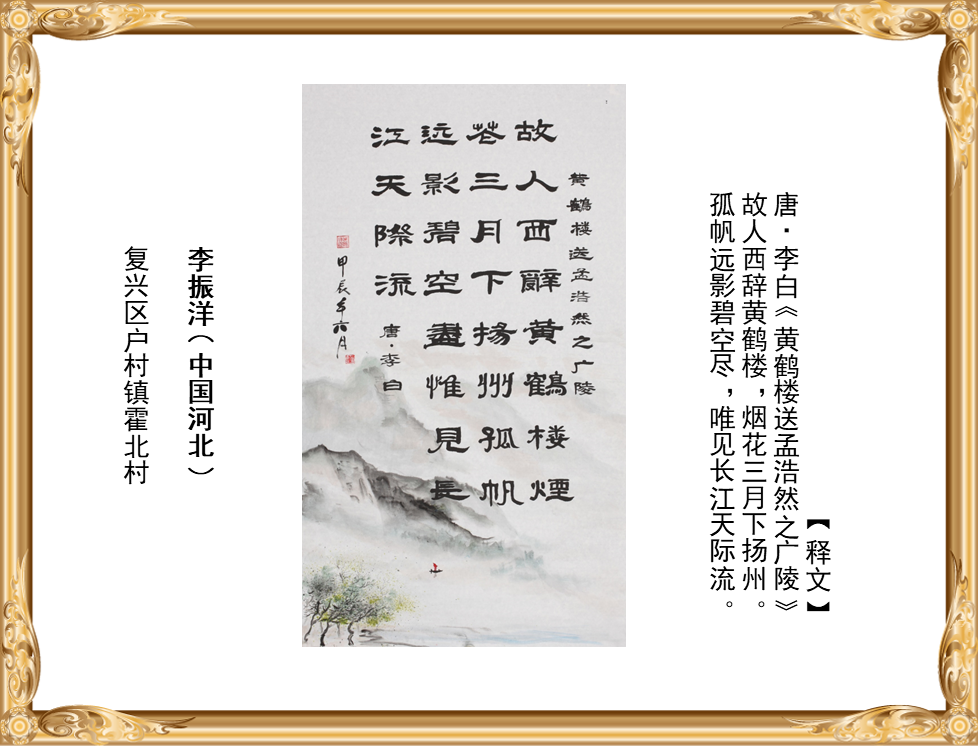 【释文】
唐·李白《黄鹤楼送孟浩然之广陵》
故人西辞黄鹤楼，烟花三月下扬州。
孤帆远影碧空尽，唯见长江天际流。
黄鹤楼送孟浩然之广陵
故人西辭黄鶴楼煙
花三月下揚州孤帆
远影碧空盡惟見長
江天際流
唐·李白
甲辰年六月
李振洋（中国河北）
复兴区户村镇霍北村